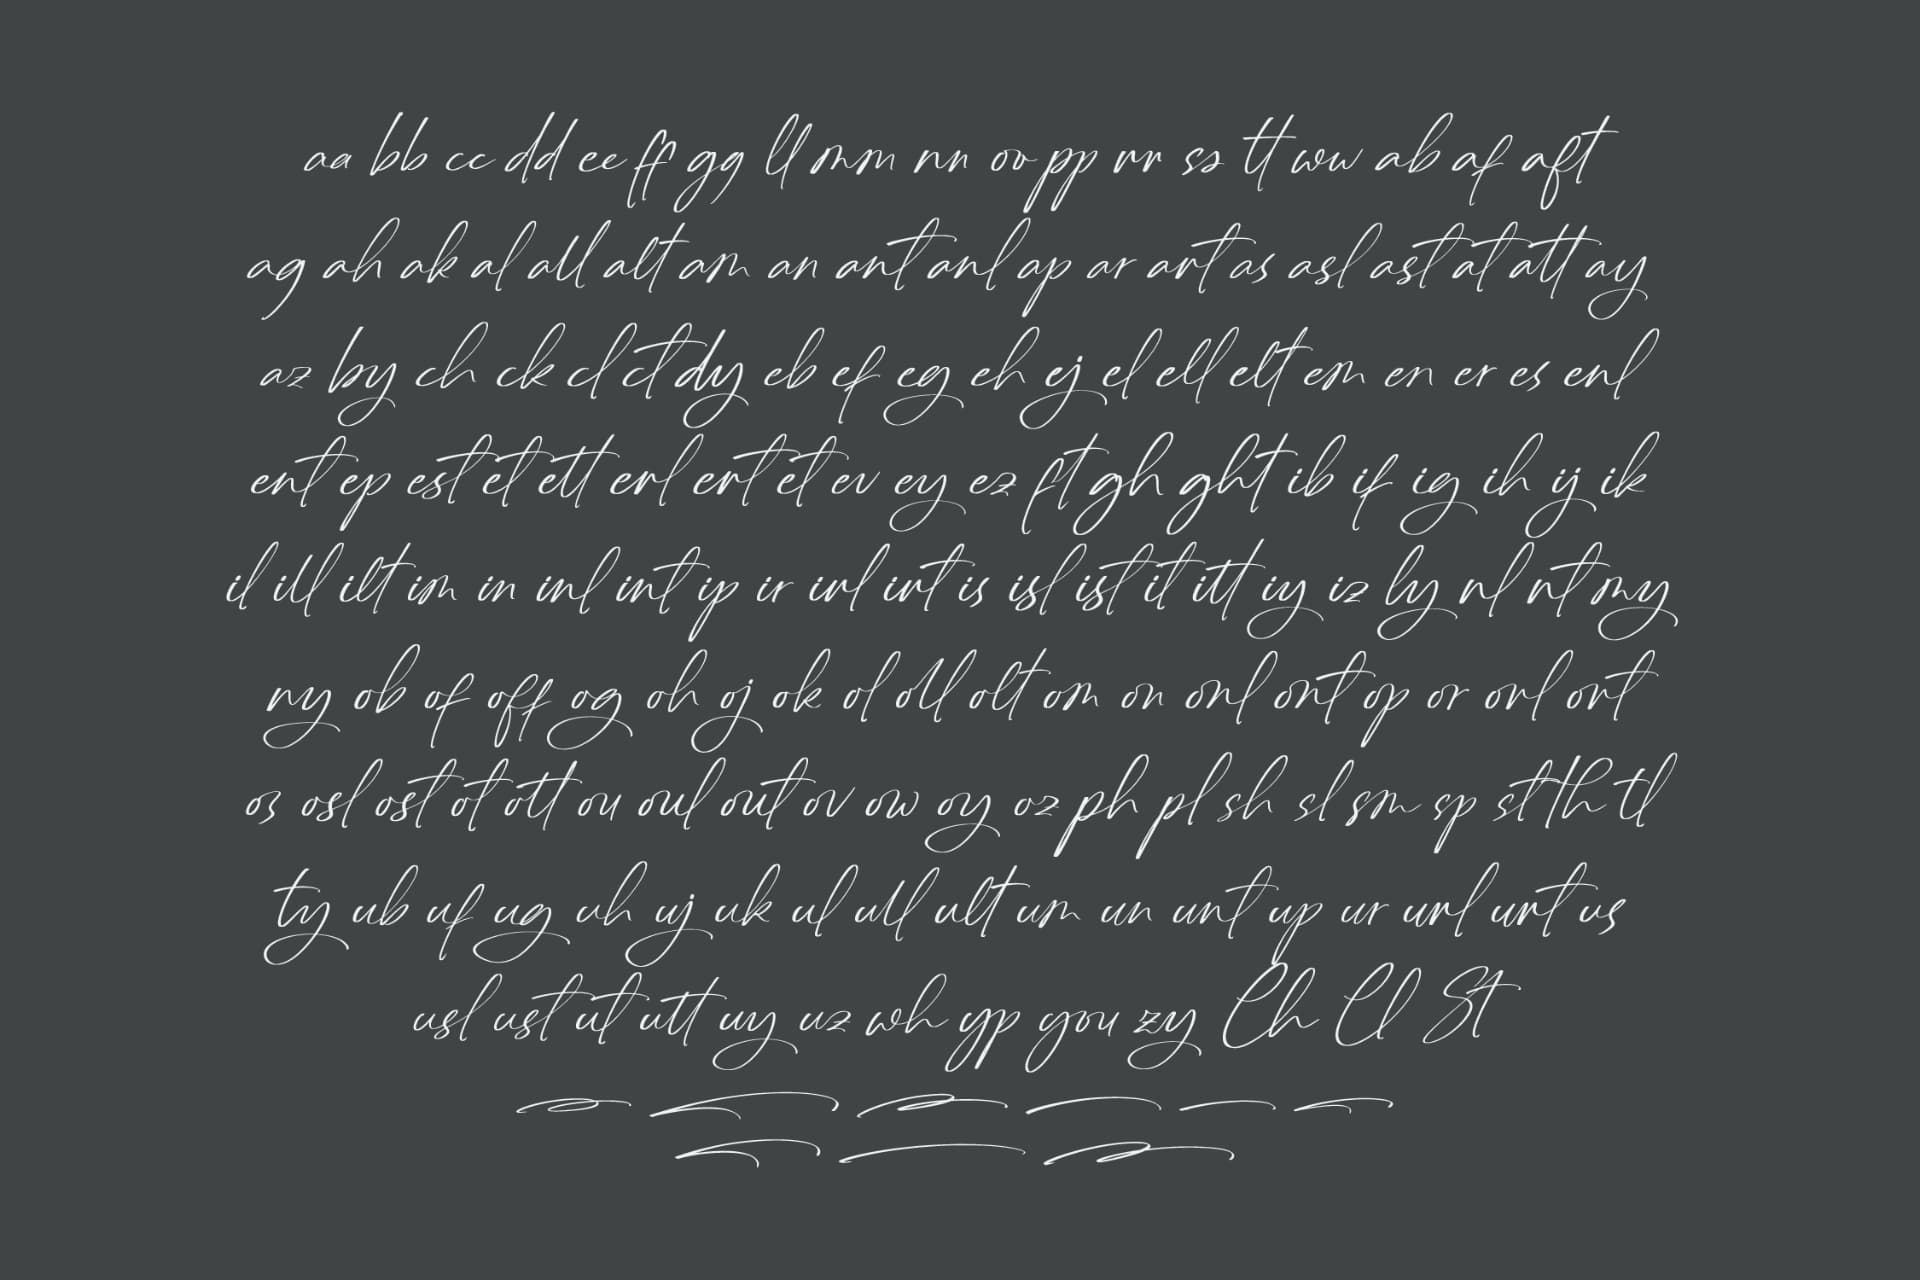 aa bb cc dd ee ff gg ll mm nn oo pp rr ss tt ww ab af aft
ag ah ak al all alt am an ant anl ap ar art as asl ast at att ay
az by ch ck cl ct dy eb ef eg eh ej el ell elt em en er es enl
ent ep est et ett erl ert et ev ey ez ft gh ght ib if ig ih ij ik
il ill ilt im in inl int ip ir irl irt is isl ist it itt iy iz ly nl nt my
ny ob of off og oh oj ok ol oll olt om on onl ont op or orl ort
os osl ost ot ott ou oul out ov ow oy oz ph pl sh sl sm sp st th tl
ty ub uf ug uh uj uk ul ull ult um un unt up ur url urt us
usl ust ut utt uy uz wh yp you zy Ch Cl St